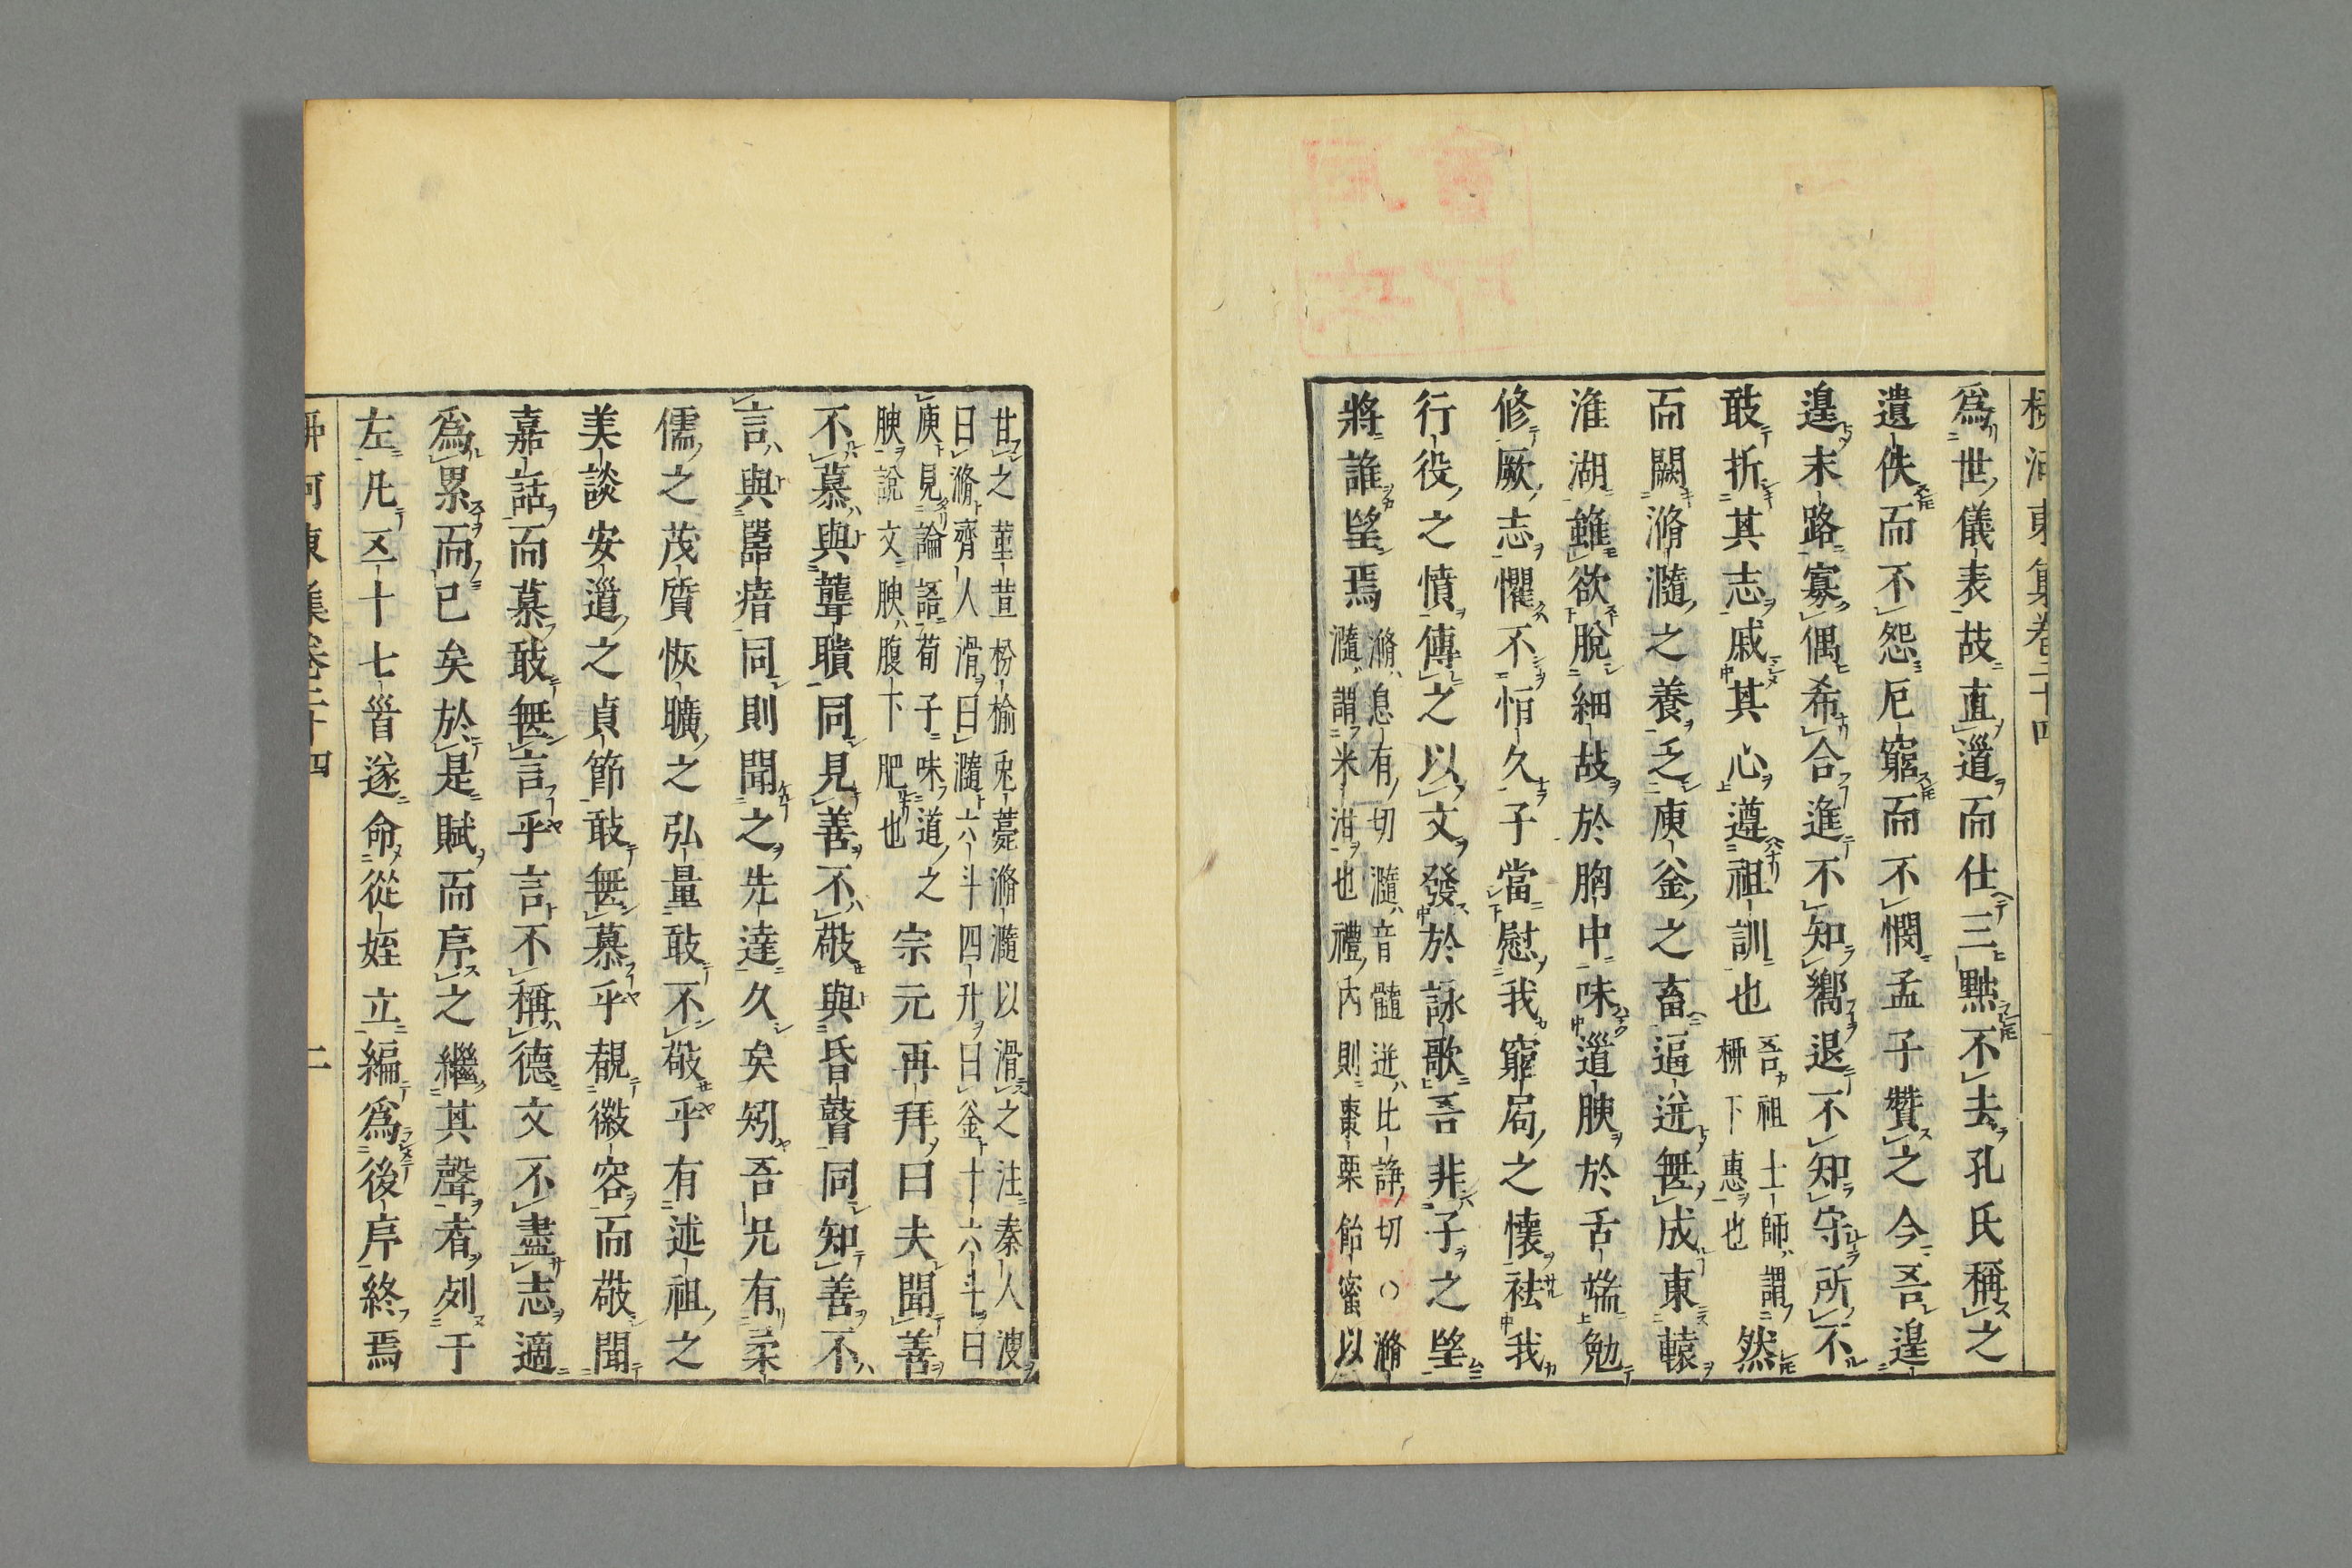 柳河東集卷二十四
為世儀表故直道而仕三黜不去孔氏稱之
遺佚而不怨厄窮而不憫孟子贊之今吾遑
遑末路寡偶希合進不知嚮退不知守所不
敢折其志感其心遵祖訓也吾祖士師謂柳下惠也然
而闕滫瀡之養乏庾釜之畜逼迸無成東轅
淮湖雖欲脫細故於胸中味道腴於舌端勉
修厥志懼不恒久子當慰我窮局之懷祛我
行役之憤傳之以文發於詠歌吾非子之望
將誰望焉
滫息有切瀡音髓迸比諍切○滫
瀡謂米泔也禮內則棗栗飴蜜以
甘之菫荁枌榆兎薧滫瀡以滑之注秦人溲
曰滫齊人滑曰瀡六斗四升曰釜十六斗曰
庾見論語荀子味道之
腴說文腴腹下肥也
宗元再拜曰夫聞善
不慕與聾聵同見善不敬與昏瞽同知善不
言與嚚瘖同則聞之先達久矣矧吾兄有柔
儒之茂質恢曠之弘量敢不敬乎有述祖之
美談安道之貞節敢無慕乎覩徽容而敬聞
嘉話而慕敢無言乎言不稱德文不盡志適
為累而已矣於是賦而序之繼其聲者列于
左凡五十七首遂命從姪立編為後序終焉
柳河東集卷二十四
二